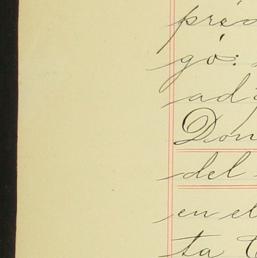 pre
gó:
ad
Don
del
en el
ta